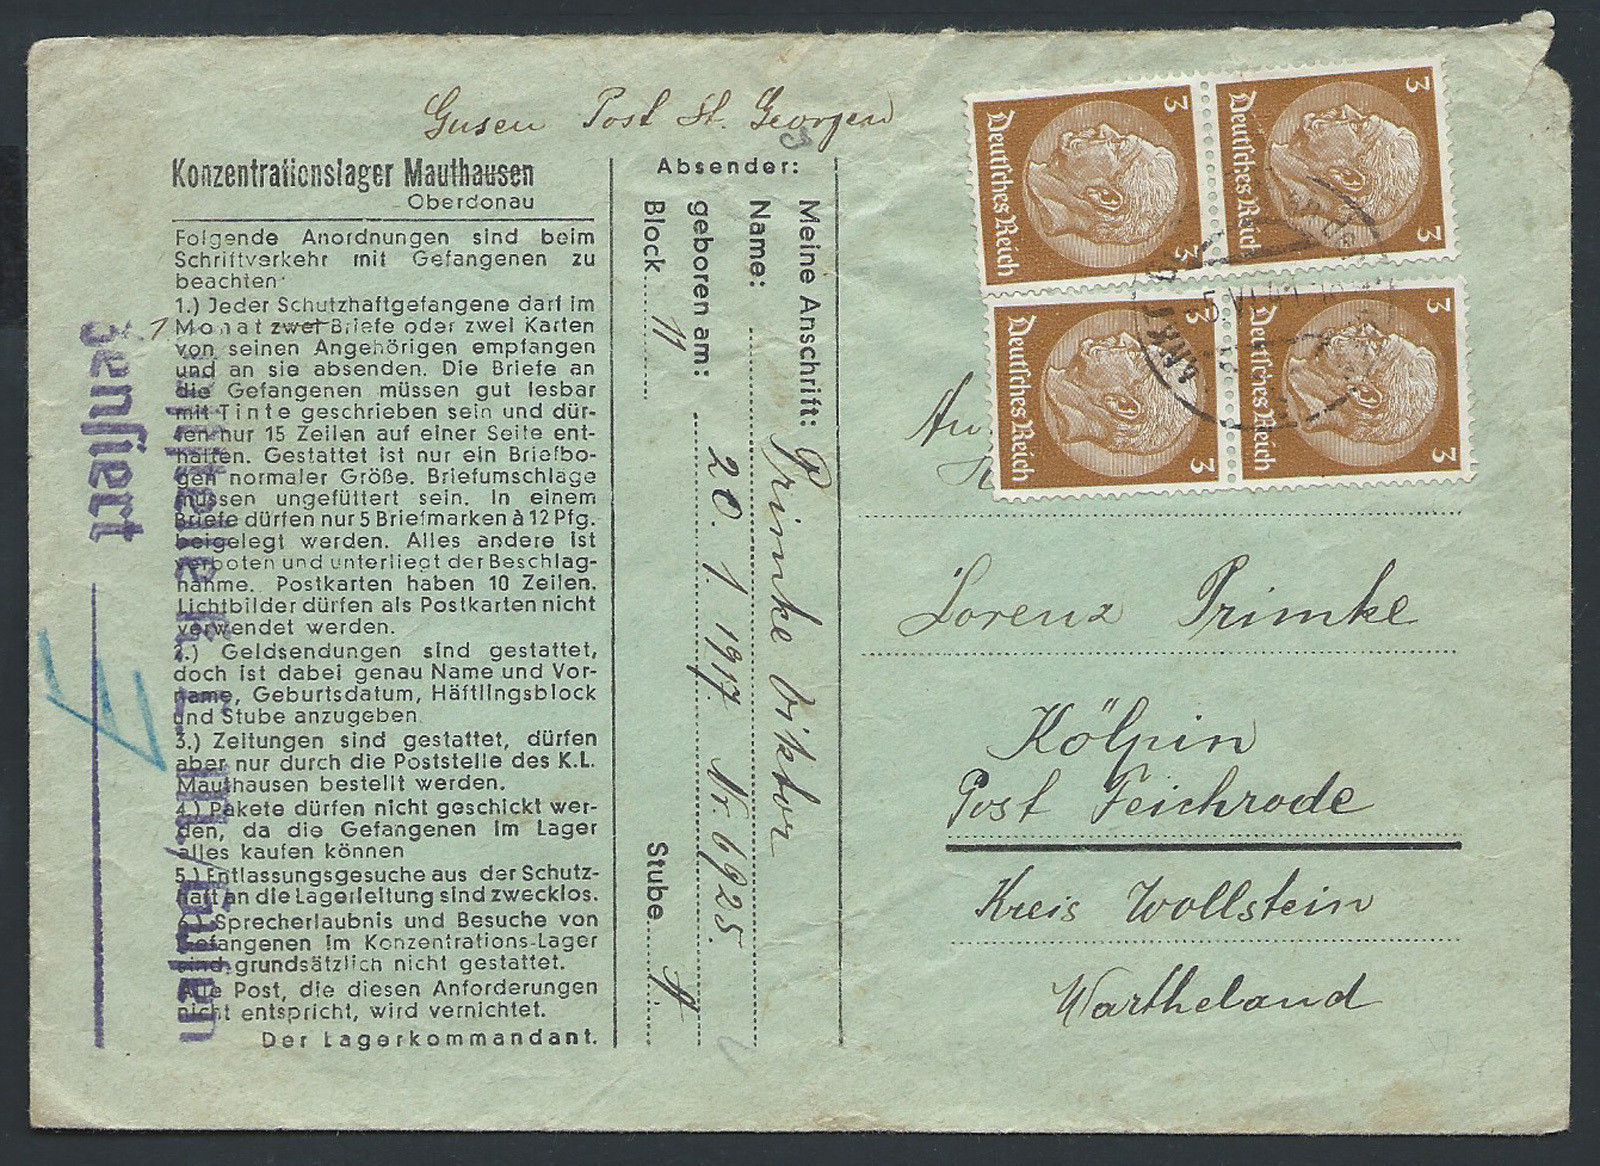 Gusen Post St. Georgen
Konzentrationslager Mauthausen
Oberdonau
Folgende Anordnungen sind beim
Schriftverkehr mit Gefangenen zu
beachten:
1.) Jeder Schutzhaftgefangene darf im
1 Monat zwei Briefe oder zwei Karten
von seinen Angehörigen empfangen
und an sie absenden. Die Briefe an
die Gefangenen müssen gut lesbar
mit Tinte geschrieben sein und dür-
fen nur 15 Zeilen auf einer Seite ent-
halten. Gestattet ist nur ein Briefbo-
gen normaler Größe. Briefumschläge
müssen ungefüttert sein. In einem
Briefe dürfen nur 5 Briefmarken à 12 Pfg.
beigelegt werden. Alles andere ist
verboten und unterliegt der Beschlag-
nahme. Postkarten haben 10 Zeilen.
Lichtbilder dürfen als Postkarten nicht
verwendet werden.
2.) Geldsendungen sind gestattet,
doch ist dabei genau Name und Vor-
name, Geburtsdatum, Häftlingsblock
und Stube anzugeben
3.) Zeitungen sind gestattet, dürfen
aber nur durch die Poststelle des K.L.
Mauthausen bestellt werden.
4.) Pakete dürfen nicht geschickt wer-
den, da die Gefangenen im Lager
alles kaufen können
5.) Entlassungsgesuche aus der Schutz-
haft an die Lagerleitung sind zwecklos.
6.) Sprecherlaubnis und Besuche von
Gefangenen im Konzentrations-Lager
sind grundsätzlich nicht gestattet.
Alle Post, die diesen Anforderungen
nicht entspricht, wird vernichtet.
Der Lagerkommandant.
Zensiert
Absender:
Meine Anschrift:
Name: Primke Viktor
geboren am: 20. 1. 1917. Nr. 6925.
Block 11 Stube A.
3 Deutsches Reich 3
3 Deutsches Reich 3
3 Deutsches Reich 3
3 Deutsches Reich 3
An
Lorenz Primke
Kölpin
Post Feichrode
Kreis Wollstein
Wartheland